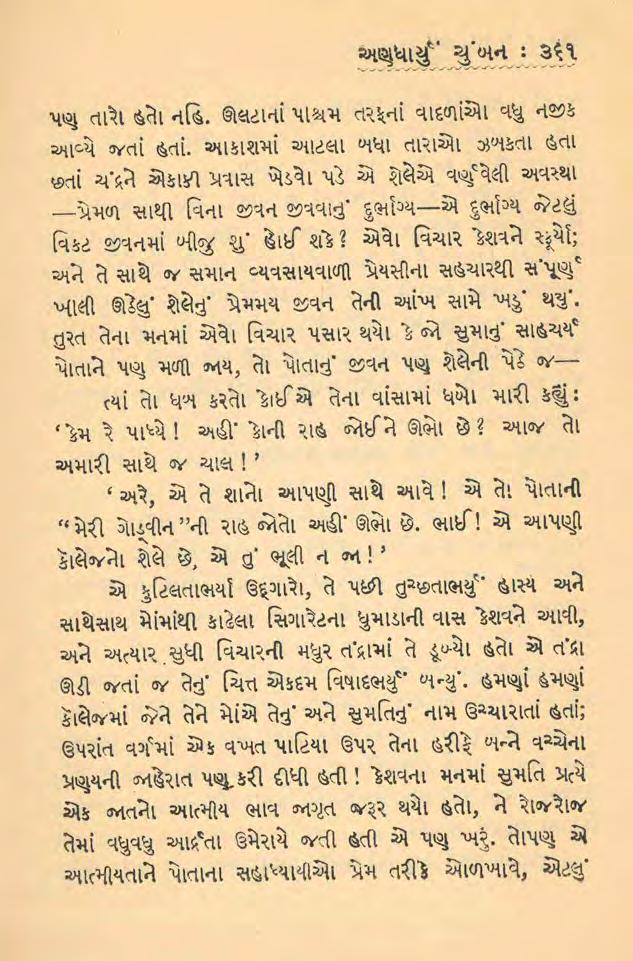 અણધાર્યું ચુંબન : ૩૬૧
પણ તારો હતો નહિ. ઊલટાનાં પાશ્ચમ તરફનાં વાદળાંઓ વધુ નજીક
આવ્યે જતાં હતાં. આકાશમાં આટલા બધા તારાઓ ઝબકતા હતા
છતાં ચંદ્રને એકાકી પ્રવાસ ખેડવો પડે એ શેલેએ વર્ણવેલી અવસ્થા
—પ્રેમળ સાથી વિના જીવન જીવવાનું દુર્ભાગ્ય—એ દુર્ભાગ્ય જેટલું
વિકટ જીવનમાં બીજુ શું હોઈ શકે? એવો વિચાર કેશવને સ્ફૂર્યો;
અને તે સાથે જ સમાન વ્યવસાયવાળી પ્રેયસીના સહચારથી સંપૂર્ણ
ખાલી ઊઠેલું શેલેનું પ્રેમમય જીવન તેની આંખ સામે ખડું થયું.
તુરત તેના મનમાં એવો વિચાર પસાર થયો કે જો સુમાનું સાહચર્ય
પોતાને પણ મળી જાય, તો પોતાનું જીવન પણ શેલેની પેઠે જ—
ત્યાં તો ધબ કરતો કોઈએ તેના વાંસામાં ધબો મારી કહ્યું:
‘કેમ રે પાધ્યે! અહીં કોની રાહ જોઈને ઊભો છે? આજ તો
અમારી સાથે જ ચાલ!’
‘અરે, એ તે શાનો આપણી સાથે આવે! એ તો પોતાની
“મેરી ગોડ્વીન”ની રાહ જોતો અહીં ઊભો છે. ભાઈ! એ આપણી
કૉલેજનો શેલે છે, એ તું ભૂલી ન જા!’
એ કુટિલતાભર્યા ઉદ્દગારો, તે પછી તુચ્છતાભર્યું હાસ્ય અને
સાથેસાથ મોંમાંથી કાઢેલા સિગારેટના ધુમાડાની વાસ કેશવને આવી,
અને અત્યાર સુધી વિચારની મધુર તંદ્રામાં તે ડૂબ્યો હતો એ તંદ્રા
ઊડી જતાં જ તેનું ચિત્ત એકદમ વિષાદભર્યું બન્યું. હમણાં હમણાં
કૉલેજમાં જેને તેને મોંએ તેનું અને સુમતિનું નામ ઉચ્ચારાતાં હતાં;
ઉપરાંત વર્ગમાં એક વખત પાટિયા ઉપર તેના હરીફે બન્ને વચ્ચેના
પ્રણયની જાહેરાત પણ કરી દીધી હતી! કેશવના મનમાં સુમતિ પ્રત્યે
એક જાતનો આત્મીય ભાવ જાગૃત જરૂર થયો હતો, ને રોજરોજ
તેમાં વધુવધુ આર્દ્રતા ઉમેરાયે જતી હતી એ પણ ખરું. તોપણ એ
આત્મીયતાને પોતાના સહાધ્યાયીઓ પ્રેમ તરીકે ઓળખાવે, એટલું